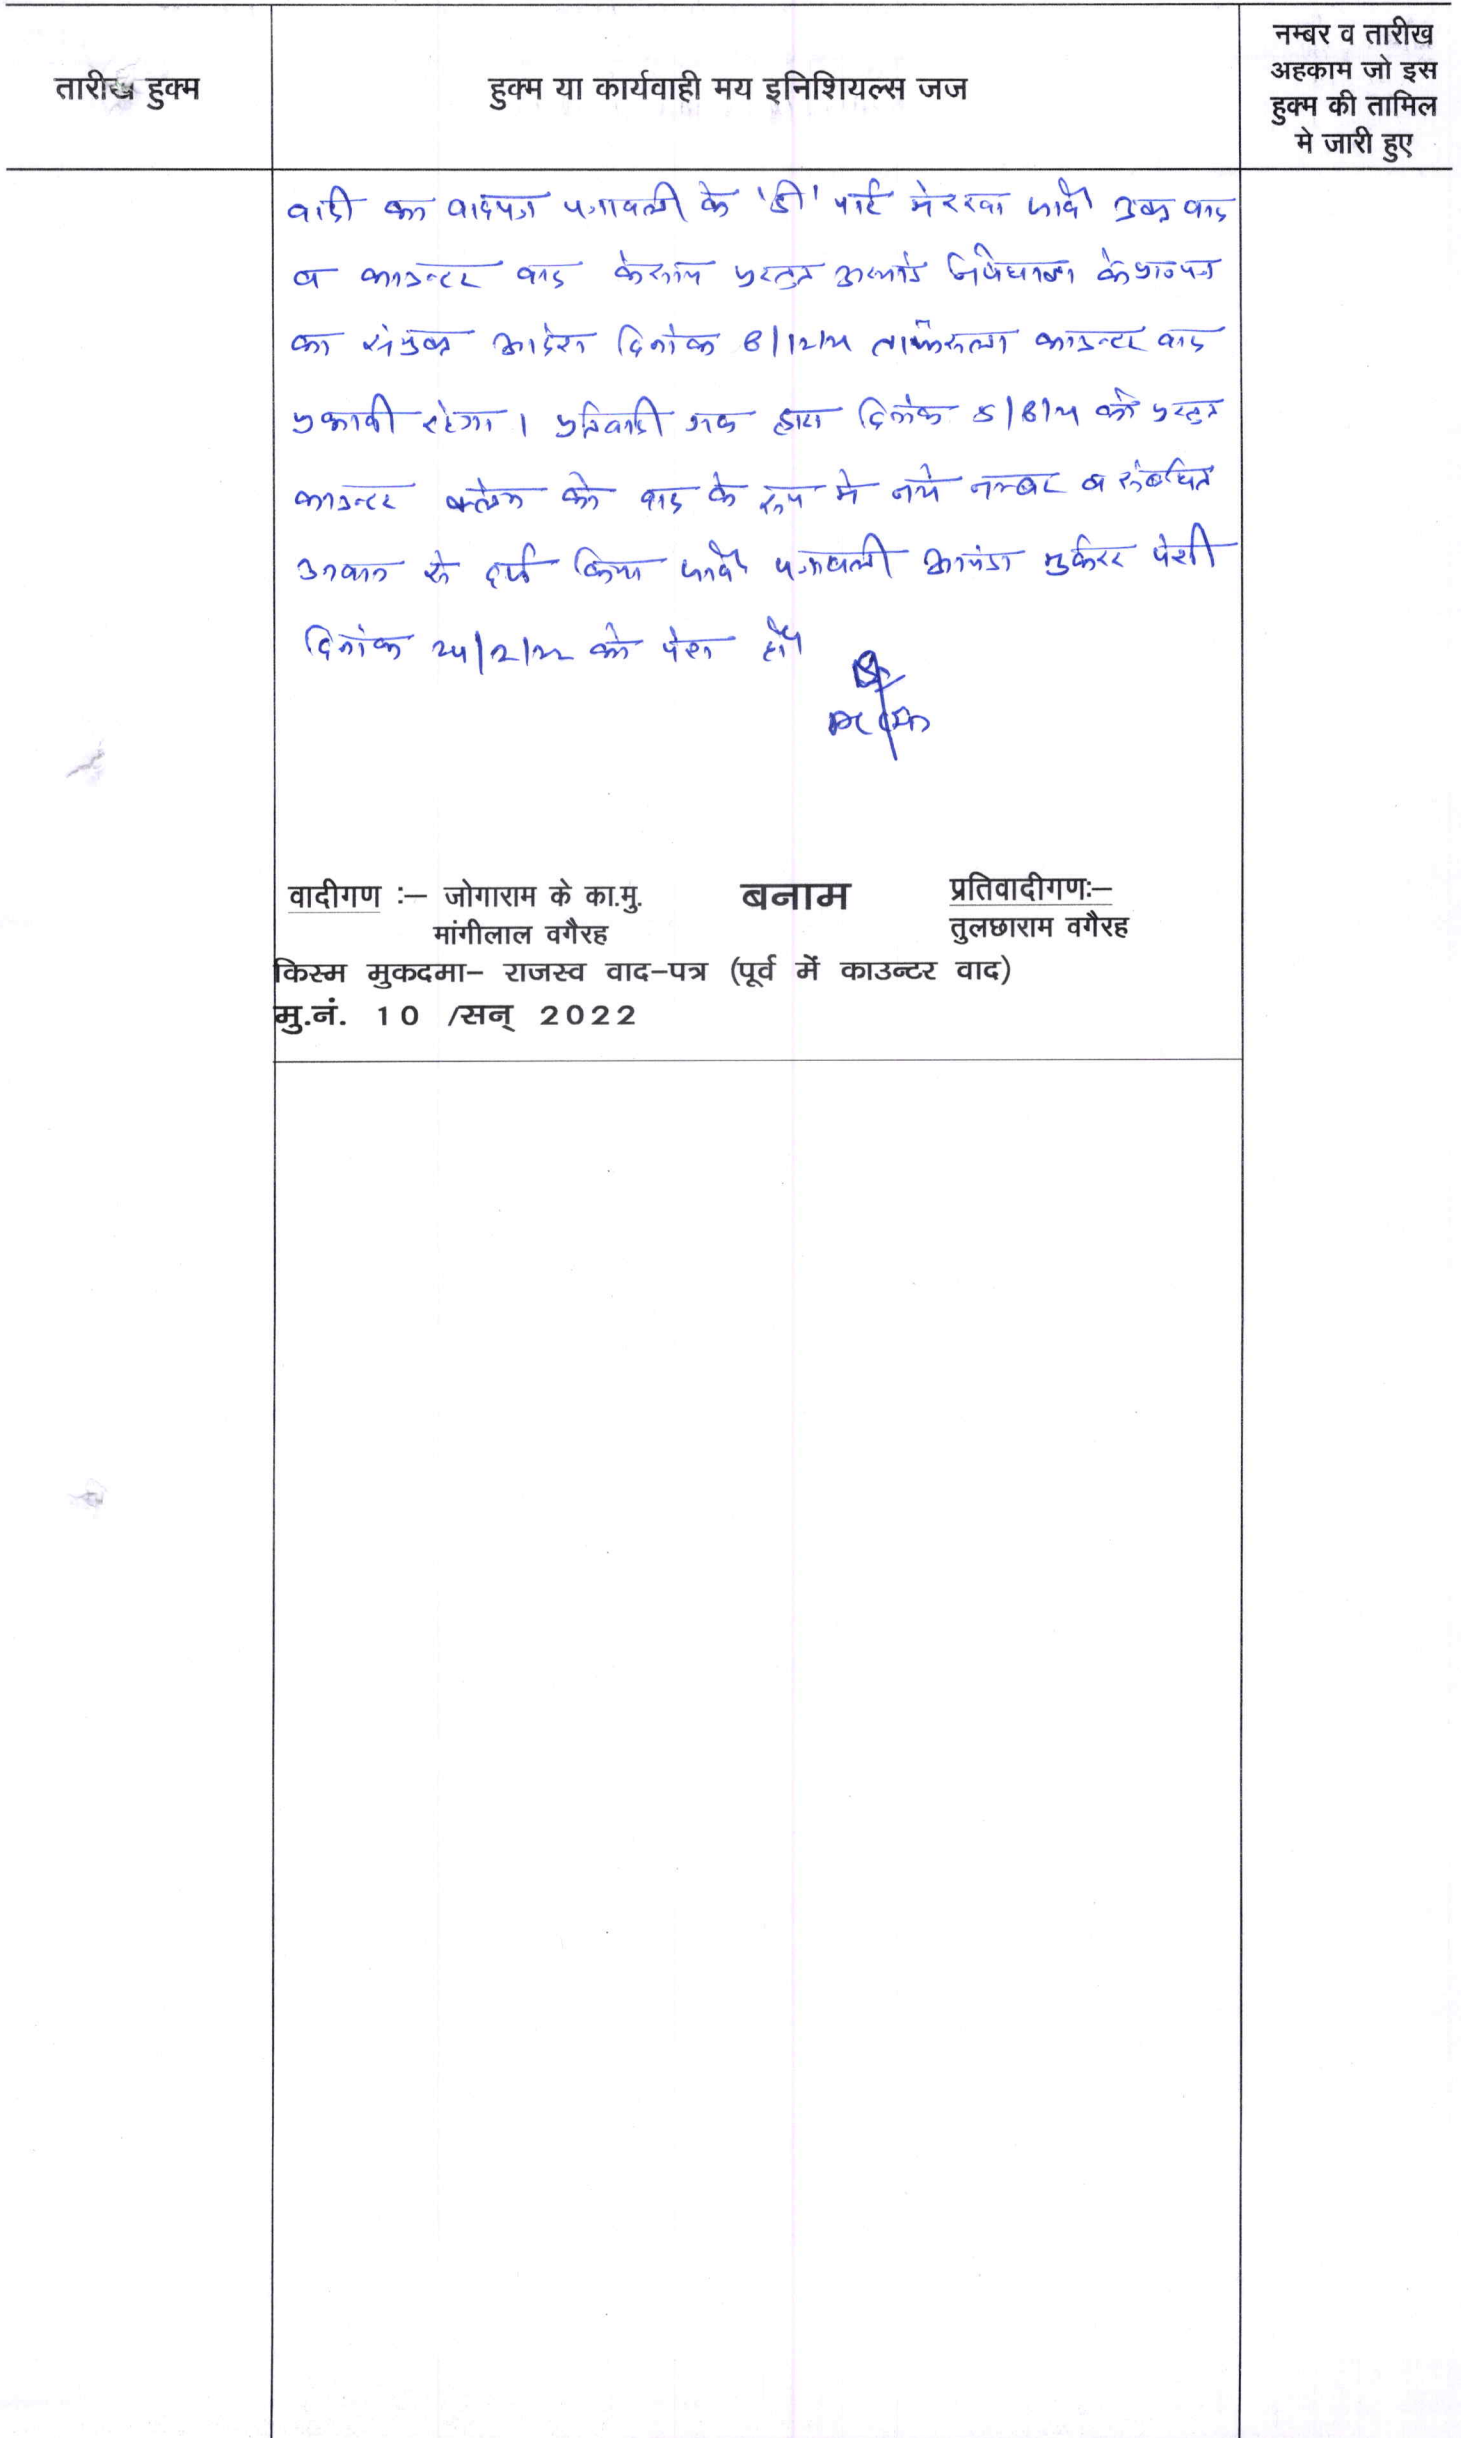 तारीख हुक्म
हुक्म या कार्यवाही मय इनिशियल्स जज
नम्बर व तारीख
अहकाम जो इस
हुक्म की तामिल
मे जारी हुए
वादी का वादपत्र पत्रावली के 'डी' पार्ट मे रखा जावे उक्त वाद
व काउन्टर वाद के साथ प्रस्तुत अस्थाई निषेधाज्ञा के प्रा०पत्र
का संयुक्त आदेश दिनांक ताफैसला काउन्टर वाद
प्रभावी रहेगा। प्रतिवादी गण द्वारा दिनांक को प्रस्तुत
काउन्टर क्लेम को वाद के रूप मे नये नम्बर व संबंधित
उनवान से दर्ज किया जावे पत्रावली आयंदा मुकर्रर पेशी
दिनांक को पेश हो
वादीगण :– जोगाराम के का.मु. बनाम प्रतिवादीगणः–
मांगीलाल वगैरह तुलछाराम वगैरह
किस्म मुकदमा– राजस्व वाद–पत्र (पूर्व में काउन्टर वाद)
मु.नं. 10 /सन् 2022